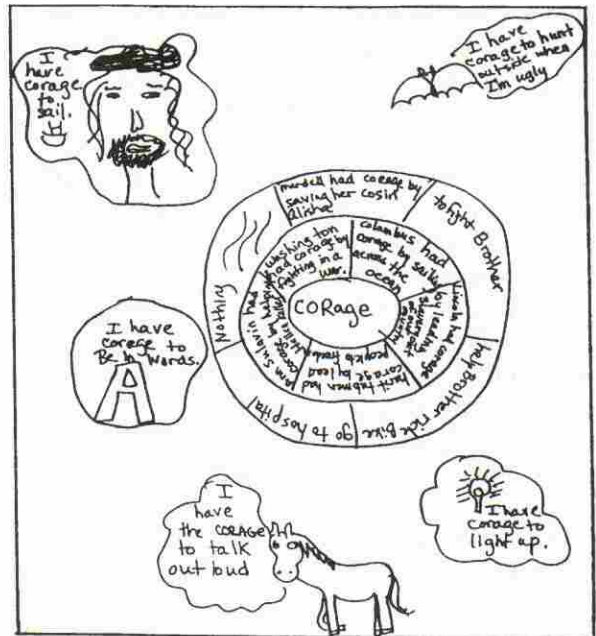 I
have
corage
to
sail.
I have
corage to hunt
outside when
I'm ugly
mandell had corage by
saving her cosin
to fight Brother
help Brother ride Bike
go to hospital
Nothing
washington
had corage by
fighting in a
war.
columbus had
corage by sailing
across the
ocean
Lincoln had corage
by leading
harit tubmen had
corage by lead
people to freedom
had
corage by helping
CORage
I have
corege to
Be in words.
A
I
have
the CORAGE
to talk
out loud
I have
corage to
light up.